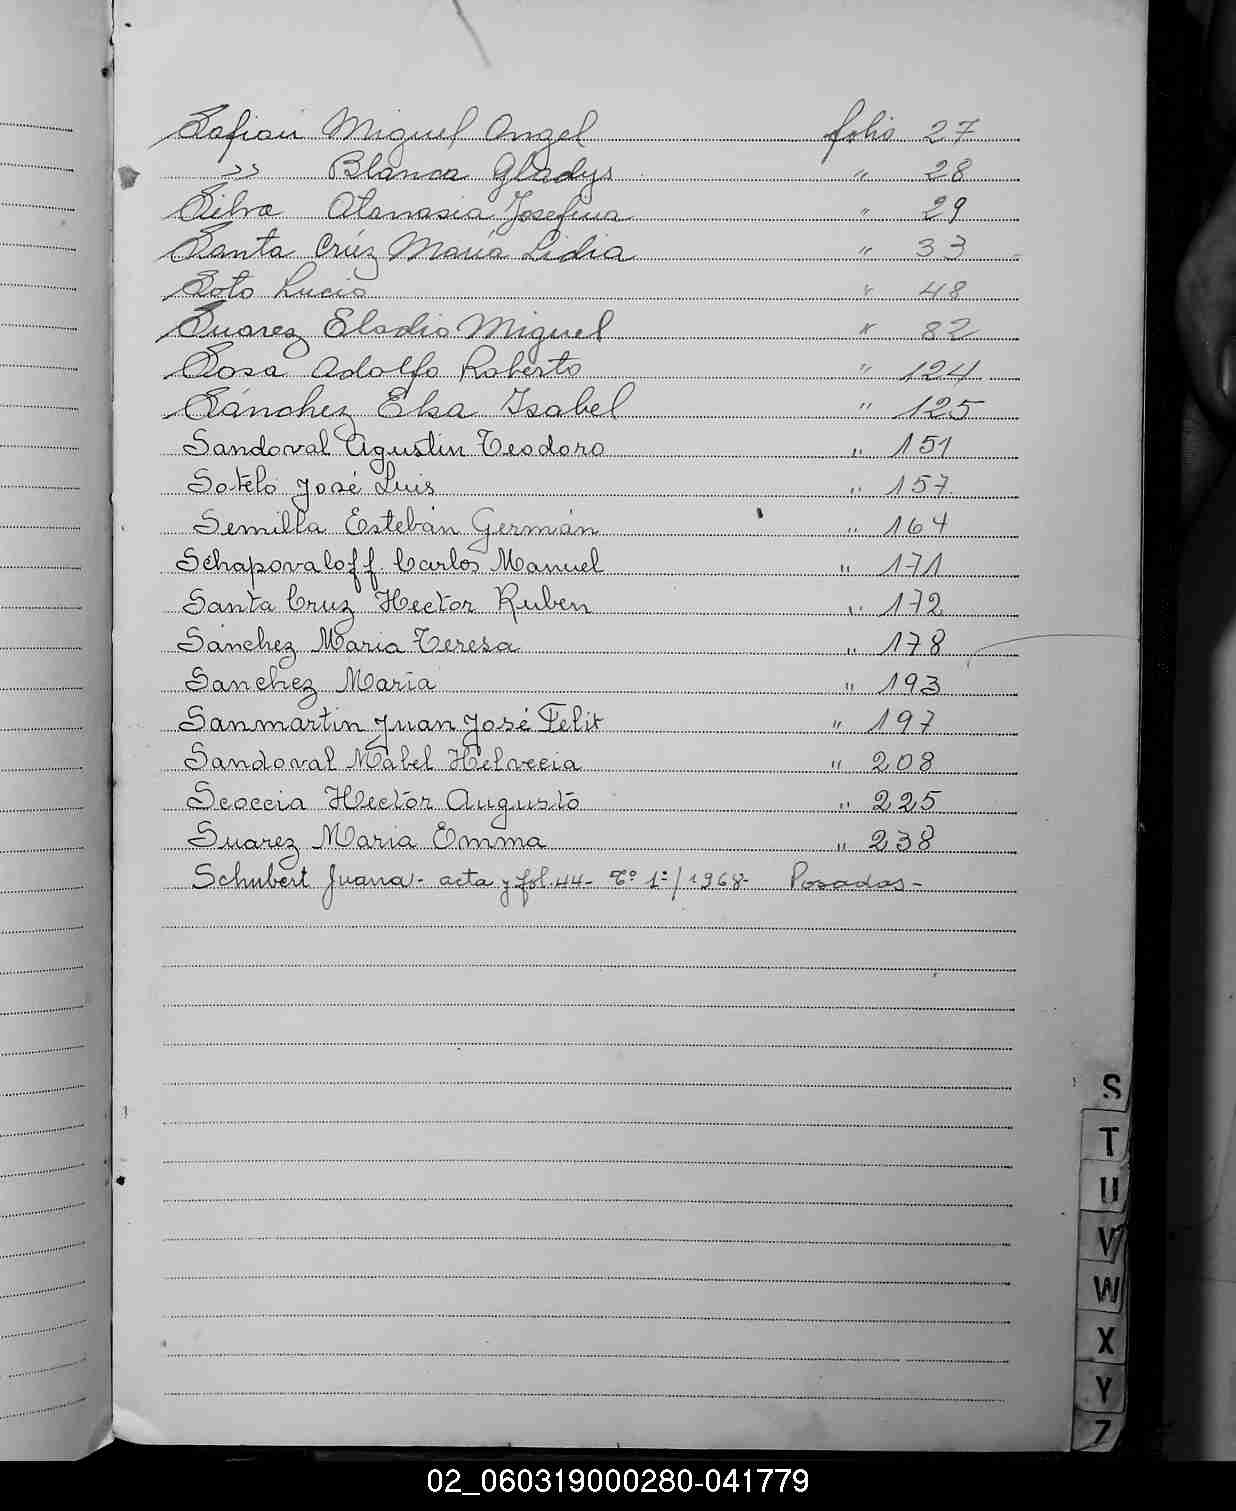 Safiau Miguel Angel folio 27
>> Blanca Gladys " 28
Silva Atanasia Josefina " 29
Santa Crúz María Lidia " 33
Soto Lucio " 48
Suarez Eladio Miguel " 82
Sosa Adolfo Roberto " 124
Sánchez Elsa Isabel " 125
Sandoval Agustin Teodoro " 151
Sotelo José Luis " 157
Semilla Esteban Germán " 164
Schapovaloff Carlos Manuel " 171
Santa Cruz Hector Ruben " 172
Sanchez Maria Teresa " 178
Sanchez Maria " 193
Sanmartin Juan José Felix " 197
Sandoval Mabel Helvecia " 208
Scoccia Hector Augusto " 225
Suarez Maria Emma " 238
Schubert Juana - acta y fol. 44 - Tº 1º/1968 - Posadas -
S
T
U
V
W
X
Y
Z
02_060319000280-041779